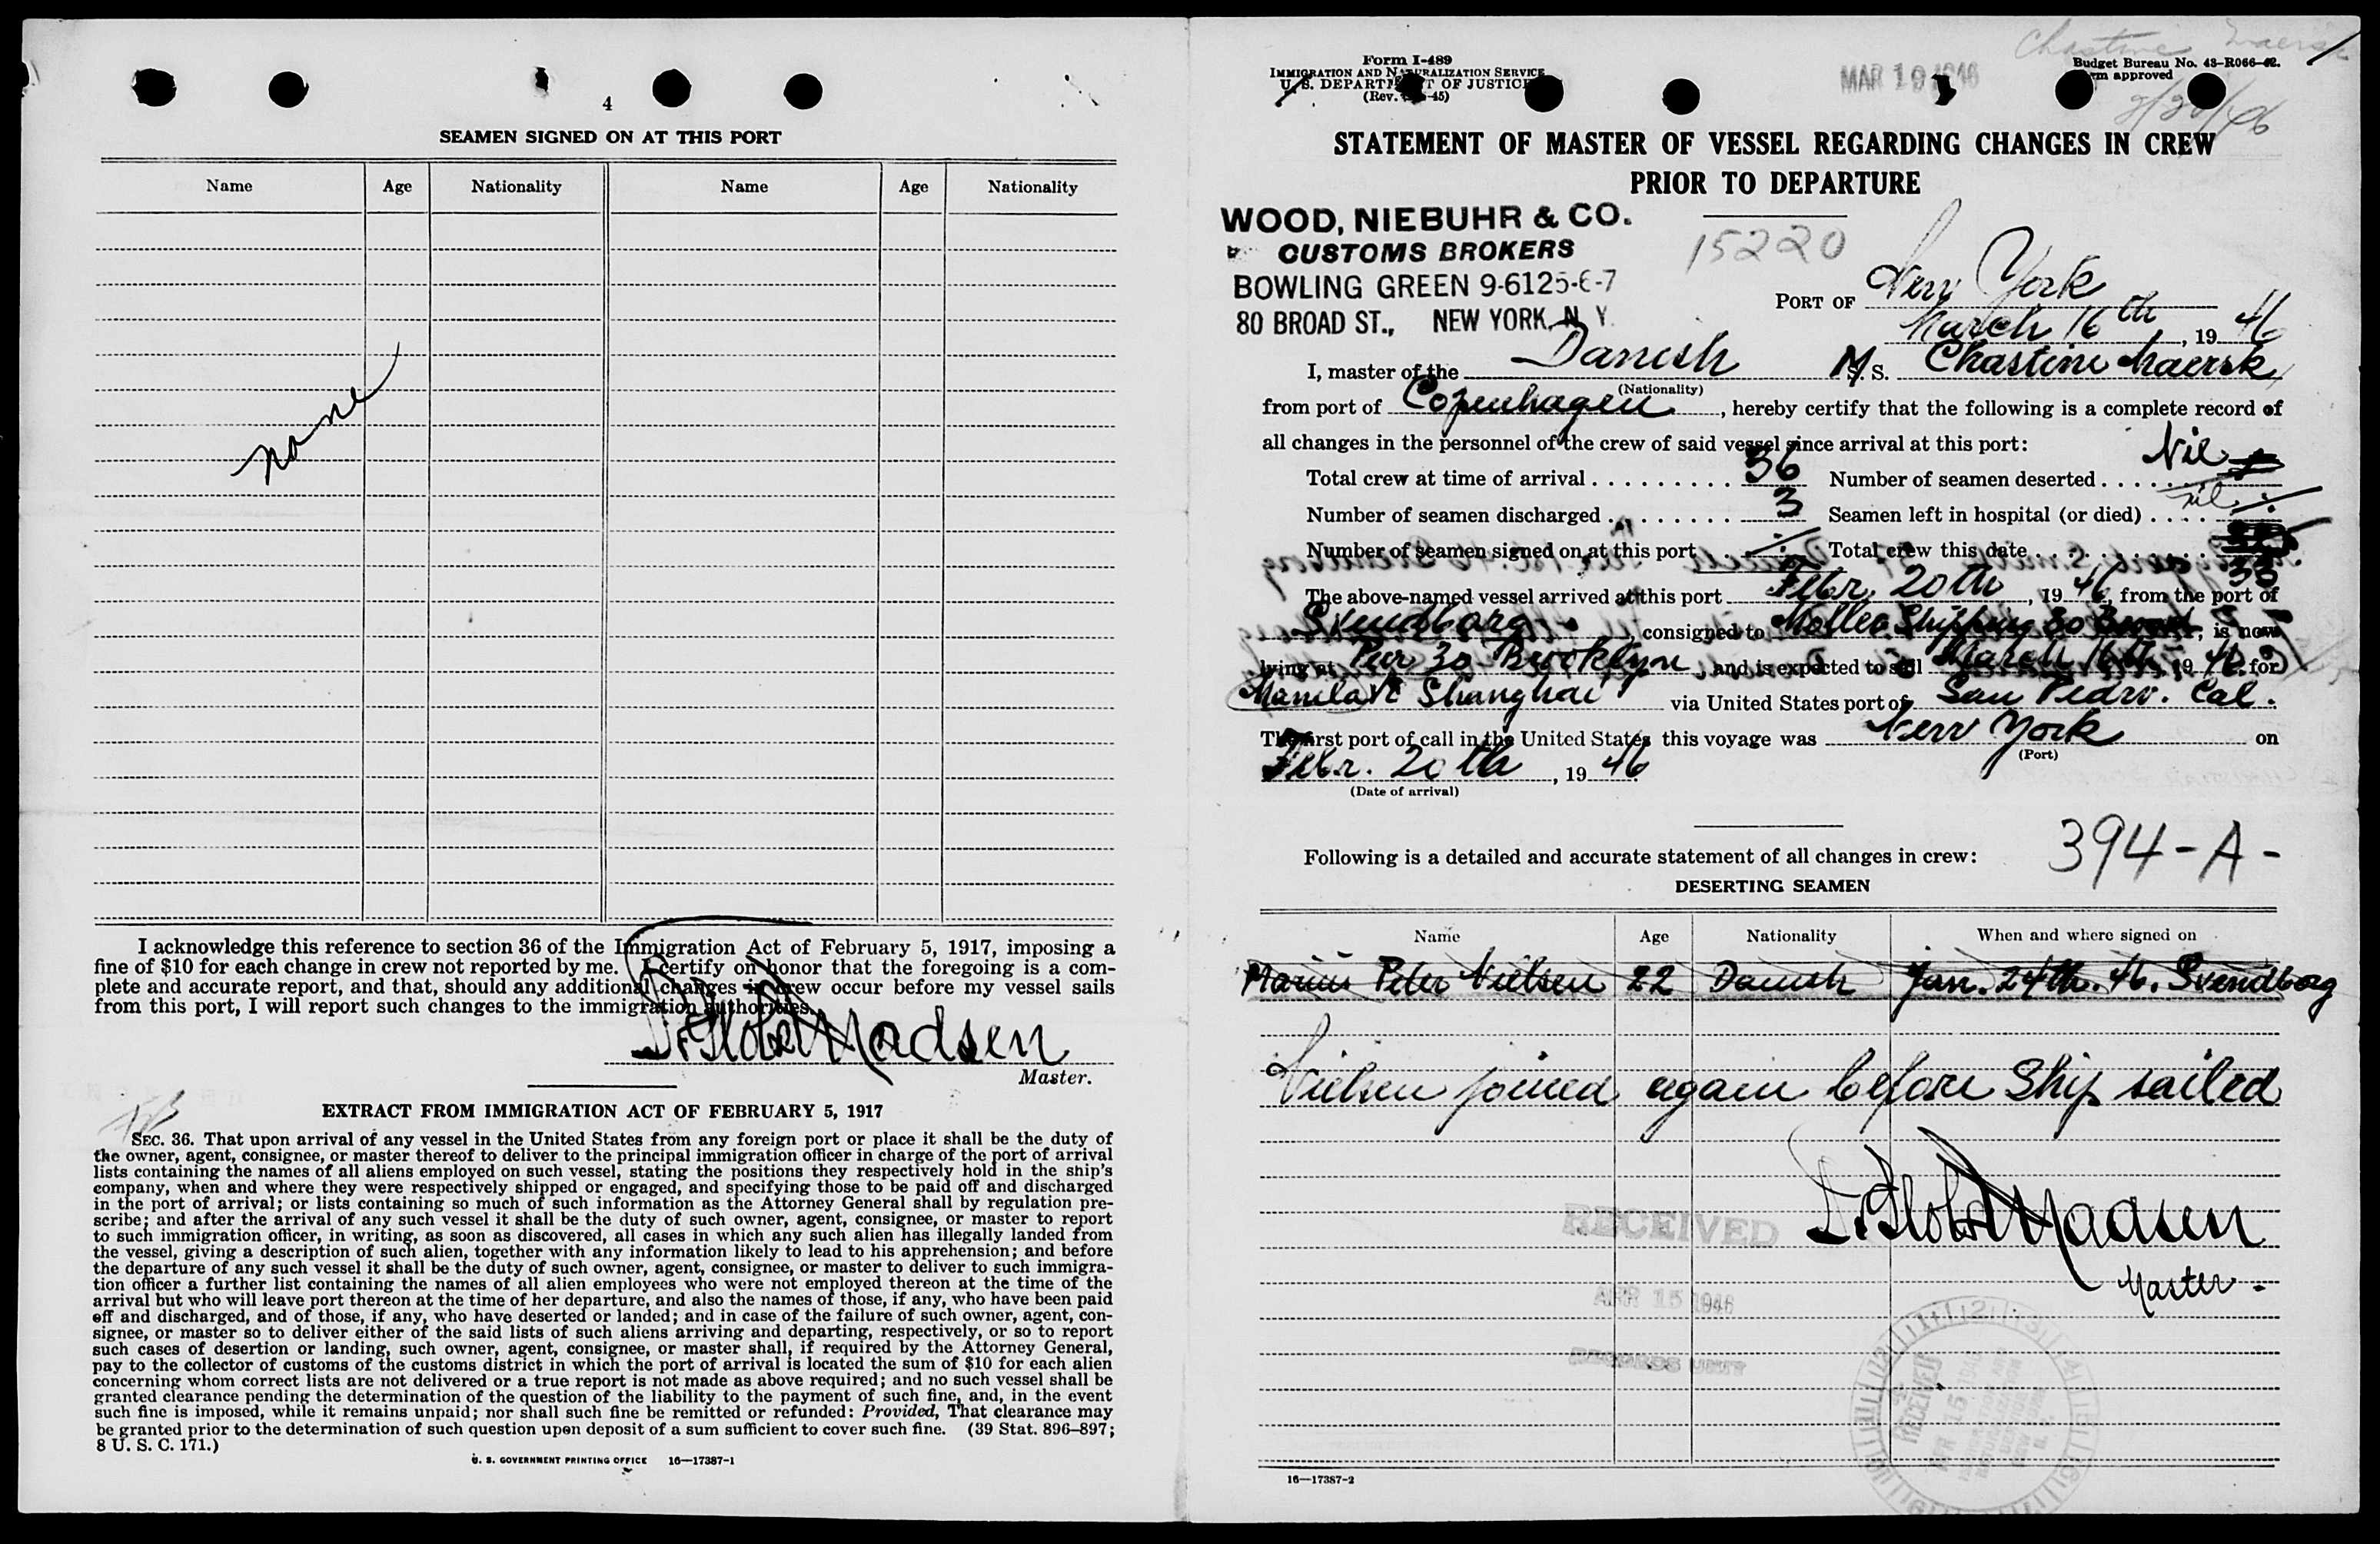 4
SEAMEN SIGNED ON AT THIS PORT
Name Age Nationality Name Age Nationality
none
I acknowledge this reference to section 36 of the Immigration Act of February 5, 1917, imposing a
fine of $10 for each change in crew not reported by me. I certify on honor that the foregoing is a com-
plete and accurate report, and that, should any additional changes in crew occur before my vessel sails
from this port, I will report such changes to the immigration authorities.
Madsen
Master.
EXTRACT FROM IMMIGRATION ACT OF FEBRUARY 5, 1917
SEC. 36. That upon arrival of any vessel in the United States from any foreign port or place it shall be the duty of
the owner, agent, consignee, or master thereof to deliver to the principal immigration officer in charge of the port of arrival
lists containing the names of all aliens employed on such vessel, stating the positions they respectively hold in the ship's
company, when and where they were respectively shipped or engaged, and specifying those to be paid off and discharged
in the port of arrival; or lists containing so much of such information as the Attorney General shall by regulation pre-
scribe; and after the arrival of any such vessel it shall be the duty of such owner, agent, consignee, or master to report
to such immigration officer, in writing, as soon as discovered, all cases in which any such alien has illegally landed from
the vessel, giving a description of such alien, together with any information likely to lead to his apprehension; and before
the departure of any such vessel it shall be the duty of such owner, agent, consignee, or master to deliver to such immigra-
tion officer a further list containing the names of all alien employees who were not employed thereon at the time of the
arrival but who will leave port thereon at the time of her departure, and also the names of those, if any, who have been paid
off and discharged, and of those, if any, who have deserted or landed; and in case of the failure of such owner, agent, con-
signee, or master so to deliver either of the said lists of such aliens arriving and departing, respectively, or so to report
such cases of desertion or landing, such owner, agent, consignee, or master shall, if required by the Attorney General,
pay to the collector of customs of the customs district in which the port of arrival is located the sum of $10 for each alien
concerning whom correct lists are not delivered or a true report is not made as above required; and no such vessel shall be
granted clearance pending the determination of the question of the liability to the payment of such fine, and, in the event
such fine is imposed, while it remains unpaid; nor shall such fine be remitted or refunded: Provided, That clearance may
be granted prior to the determination of such question upon deposit of a sum sufficient to cover such fine. (39 Stat. 896-897;
8 U. S. C. 171.)
U. S. GOVERNMENT PRINTING OFFICE 16—17387-1
Chastine Maersk
Form I-489
IMMIGRATION AND NATURALIZATION SERVICE
U. S. DEPARTMENT OF JUSTICE
(Rev. -45)
MAR 19 1946
Budget Bureau No. 43-R066-42.
approved
2/20/46
STATEMENT OF MASTER OF VESSEL REGARDING CHANGES IN CREW
PRIOR TO DEPARTURE
WOOD, NIEBUHR & CO.
CUSTOMS BROKERS
BOWLING GREEN 9-6125-6-7
80 BROAD ST., NEW YORK, N. Y.
15220
PORT OF New York
March 16th, 19 46
I, master of the Danish M/S. Chastine Maersk
(Nationality)
from port of Copenhagen, hereby certify that the following is a complete record of
all changes in the personnel of the crew of said vessel since arrival at this port:
Total crew at time of arrival 36 Number of seamen deserted Nil
Number of seamen discharged 3 Seamen left in hospital (or died) nil
Number of seamen signed on at this port Total crew this date 33
The above-named vessel arrived at this port Febr. 20th, 19 46, from the port of
Svendborg, consigned to Moller Shipping Co, is now
lying at Pier 30 Brooklyn, and is expected to sail March 16th 19 46 for
Manila & Shanghai via United States port of San Pedro. Cal.
The first port of call in the United States this voyage was New York on
(Port)
Febr. 20th, 19 46
(Date of arrival)
394-A-
Following is a detailed and accurate statement of all changes in crew:
DESERTING SEAMEN
Name Age Nationality When and where signed on
Marius Peter Nielsen 22 Danish Jan. 24th. 46. Svendborg
Nielsen joined again before Ship sailed
Madsen
Master
RECEIVED
APR 15 1946
RECORDS UNIT
RECEIVED
APR 15
16—17387-2